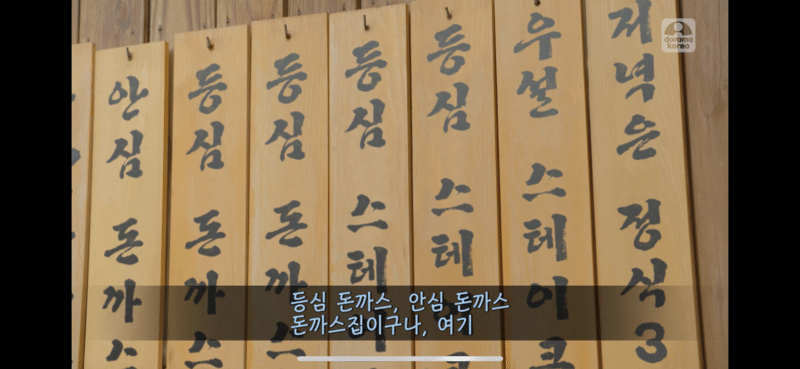 안심 돈까스
등심 돈까스
등심 돈까스
등심 스테이
등심 스테
우설 스테이크
저녁은 정식 3
dorama
korea
등심 돈까스, 안심 돈까스
돈까스집이구나, 여기